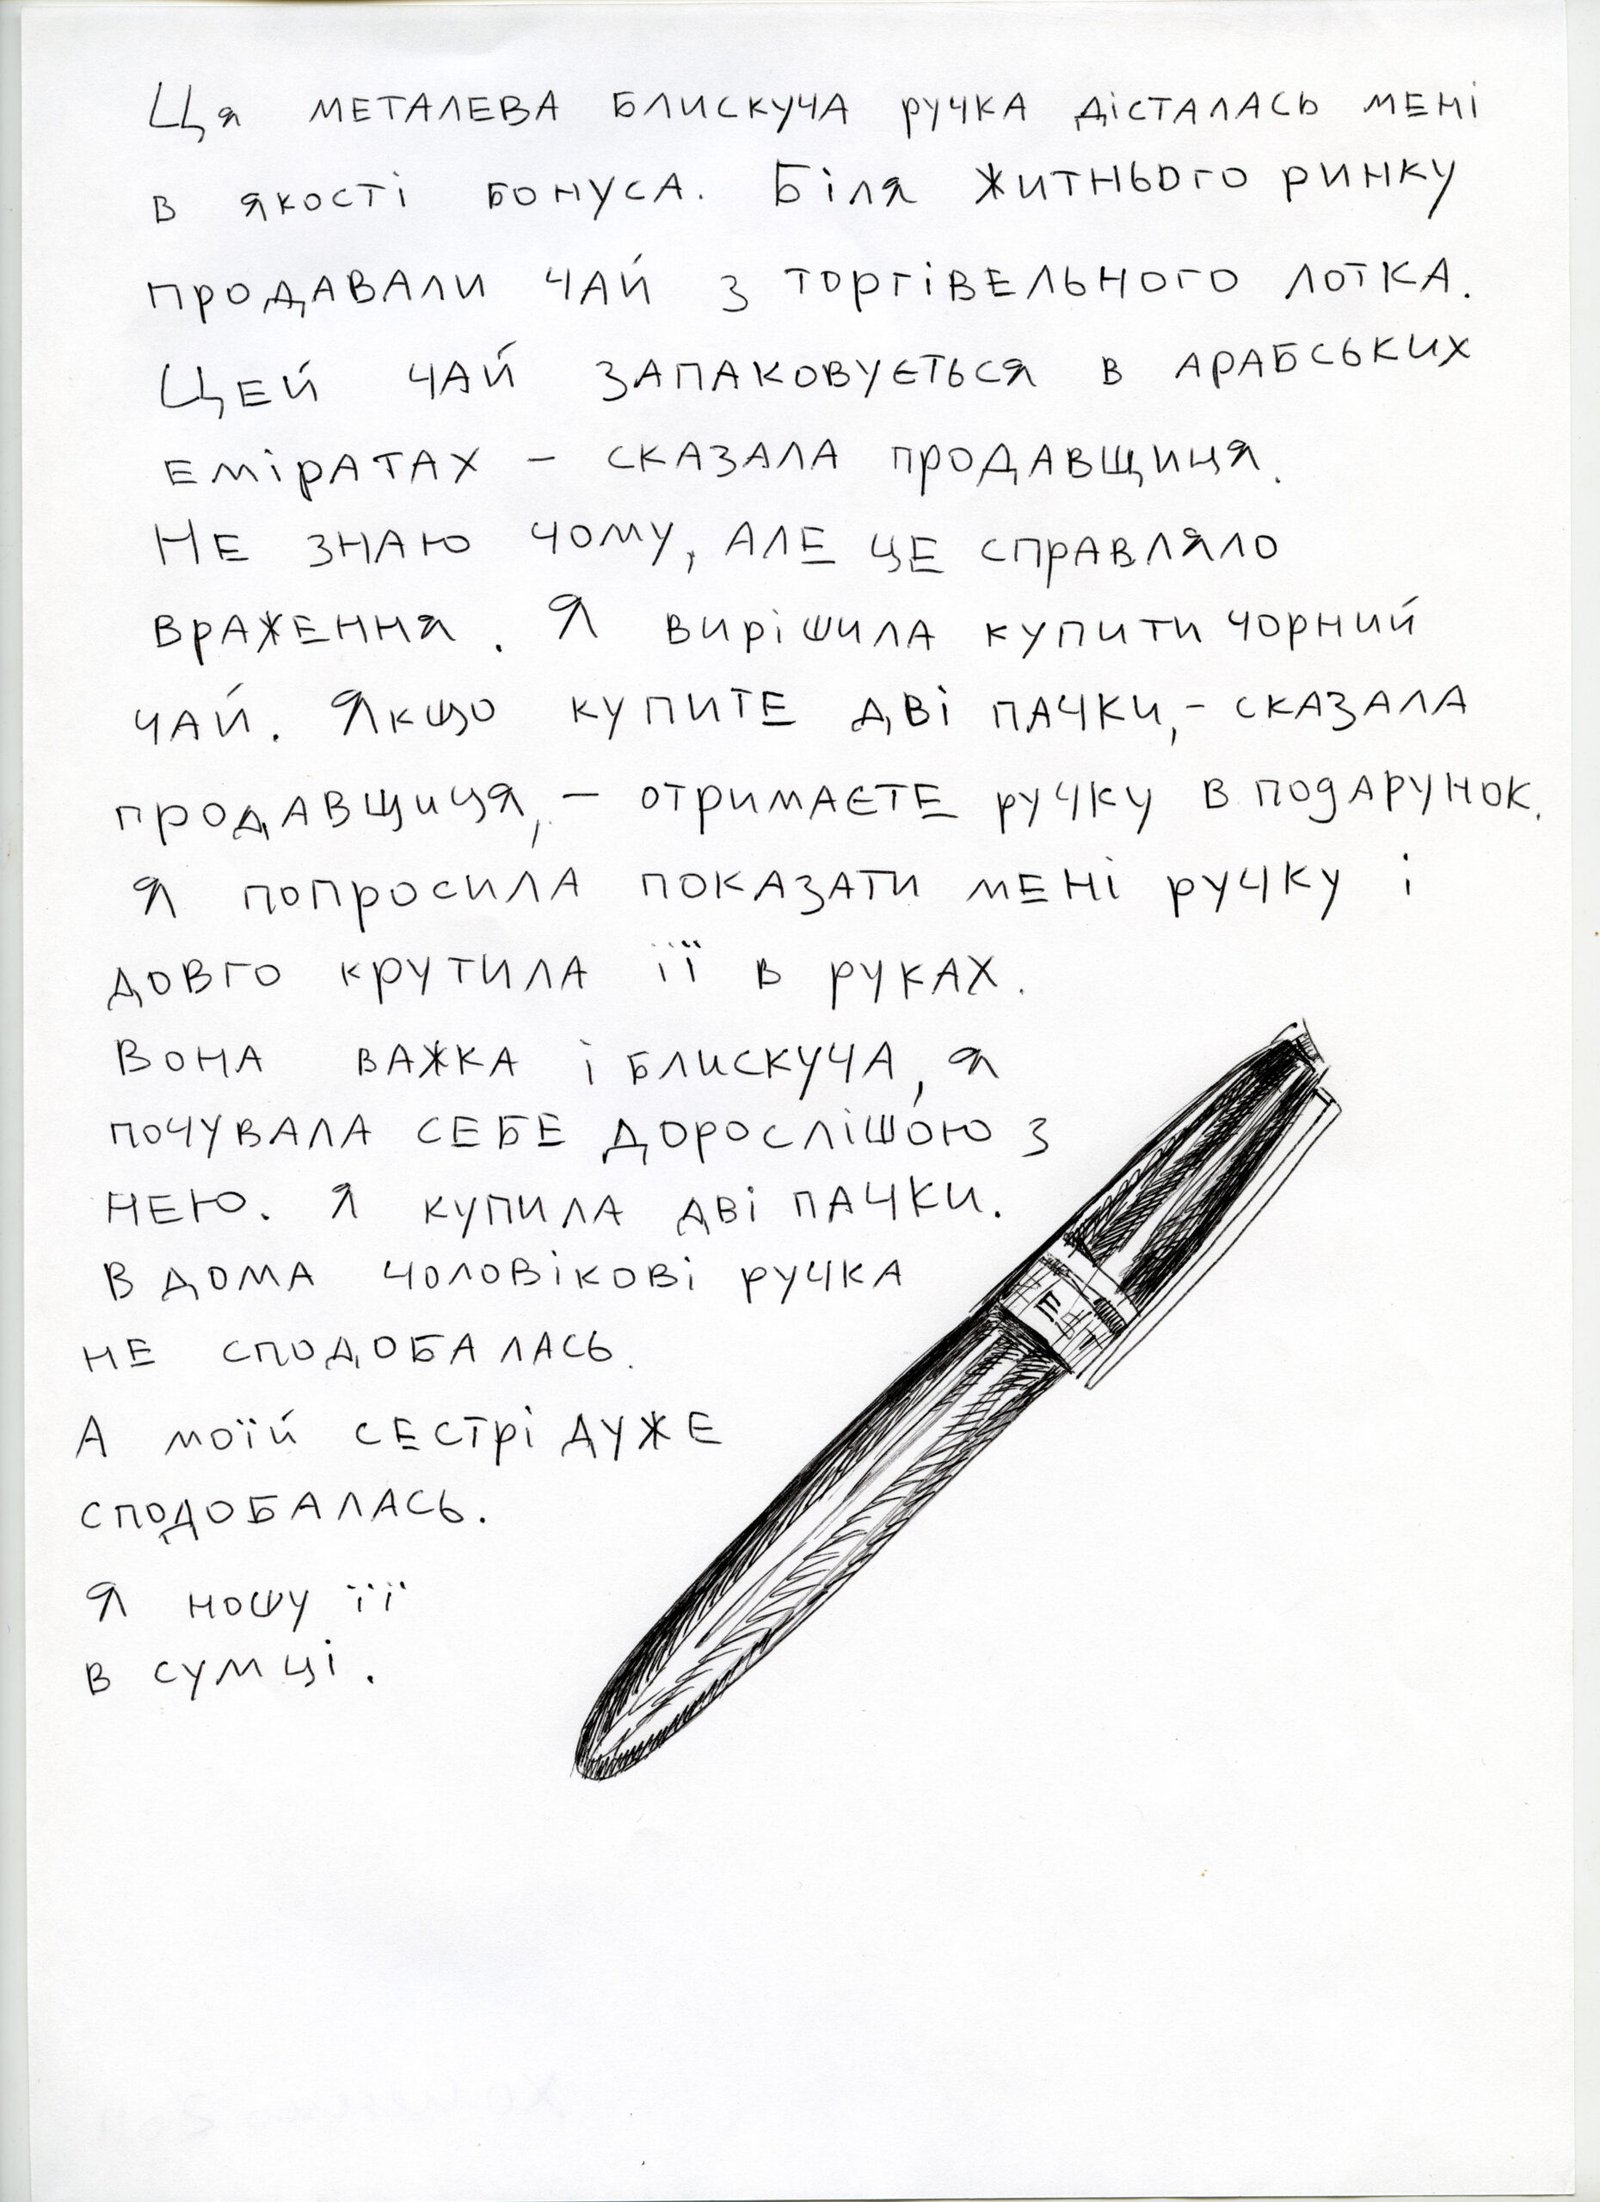 Ця металева блискуча ручка дісталась мені
в якості бонуса. Біля Житнього ринку
продавали чай з торгівельного лотка.
Цей чай запаковується в арабських
еміратах – сказала продавщиця.
Не знаю чому, але це справляло
враження. Я вирішила купити чорний
чай. Якщо купите дві пачки, – сказала
продавщиця, – отримаєте ручку в подарунок.
Я попросила показати мені ручку і
довго крутила її в руках.
Вона важка і блискуча, я
почувала себе дорослішою з
нею. Я купила дві пачки.
В дома чоловікові ручка
не сподобалась.
А моїй сестрі дуже
сподобалась.
Я ношу її
в сумці.